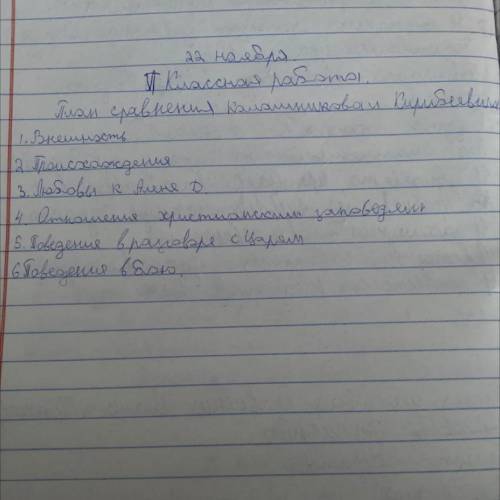 22 ноября
Классная работа.
План сравнения Калашникова и Кирибеевича
1. Внешность
2. Происхождения
3. Любовь к Алене Д.
4. Отношения христианским заповедям
5. Поведение в разговоре с Царям
6 Поведения в бою.